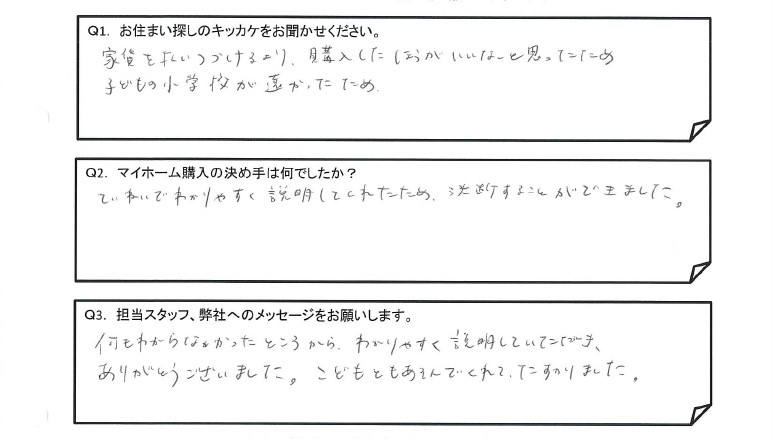 Q1. お住まい探しのキッカケをお聞かせください。
家賃を払いつづけるより、購入したほうがいいなーと思ったため
子どもの小学校が遠かったため.
Q2. マイホーム購入の決め手は何でしたか？
ていねいでわかりやすく説明してくれたため、決断することができました。
Q3. 担当スタッフ、弊社へのメッセージをお願いします。
何もわからなかったところから、わかりやすく説明していただき、
ありがとうございました。こどもともあそんでくれて、たすかりました。